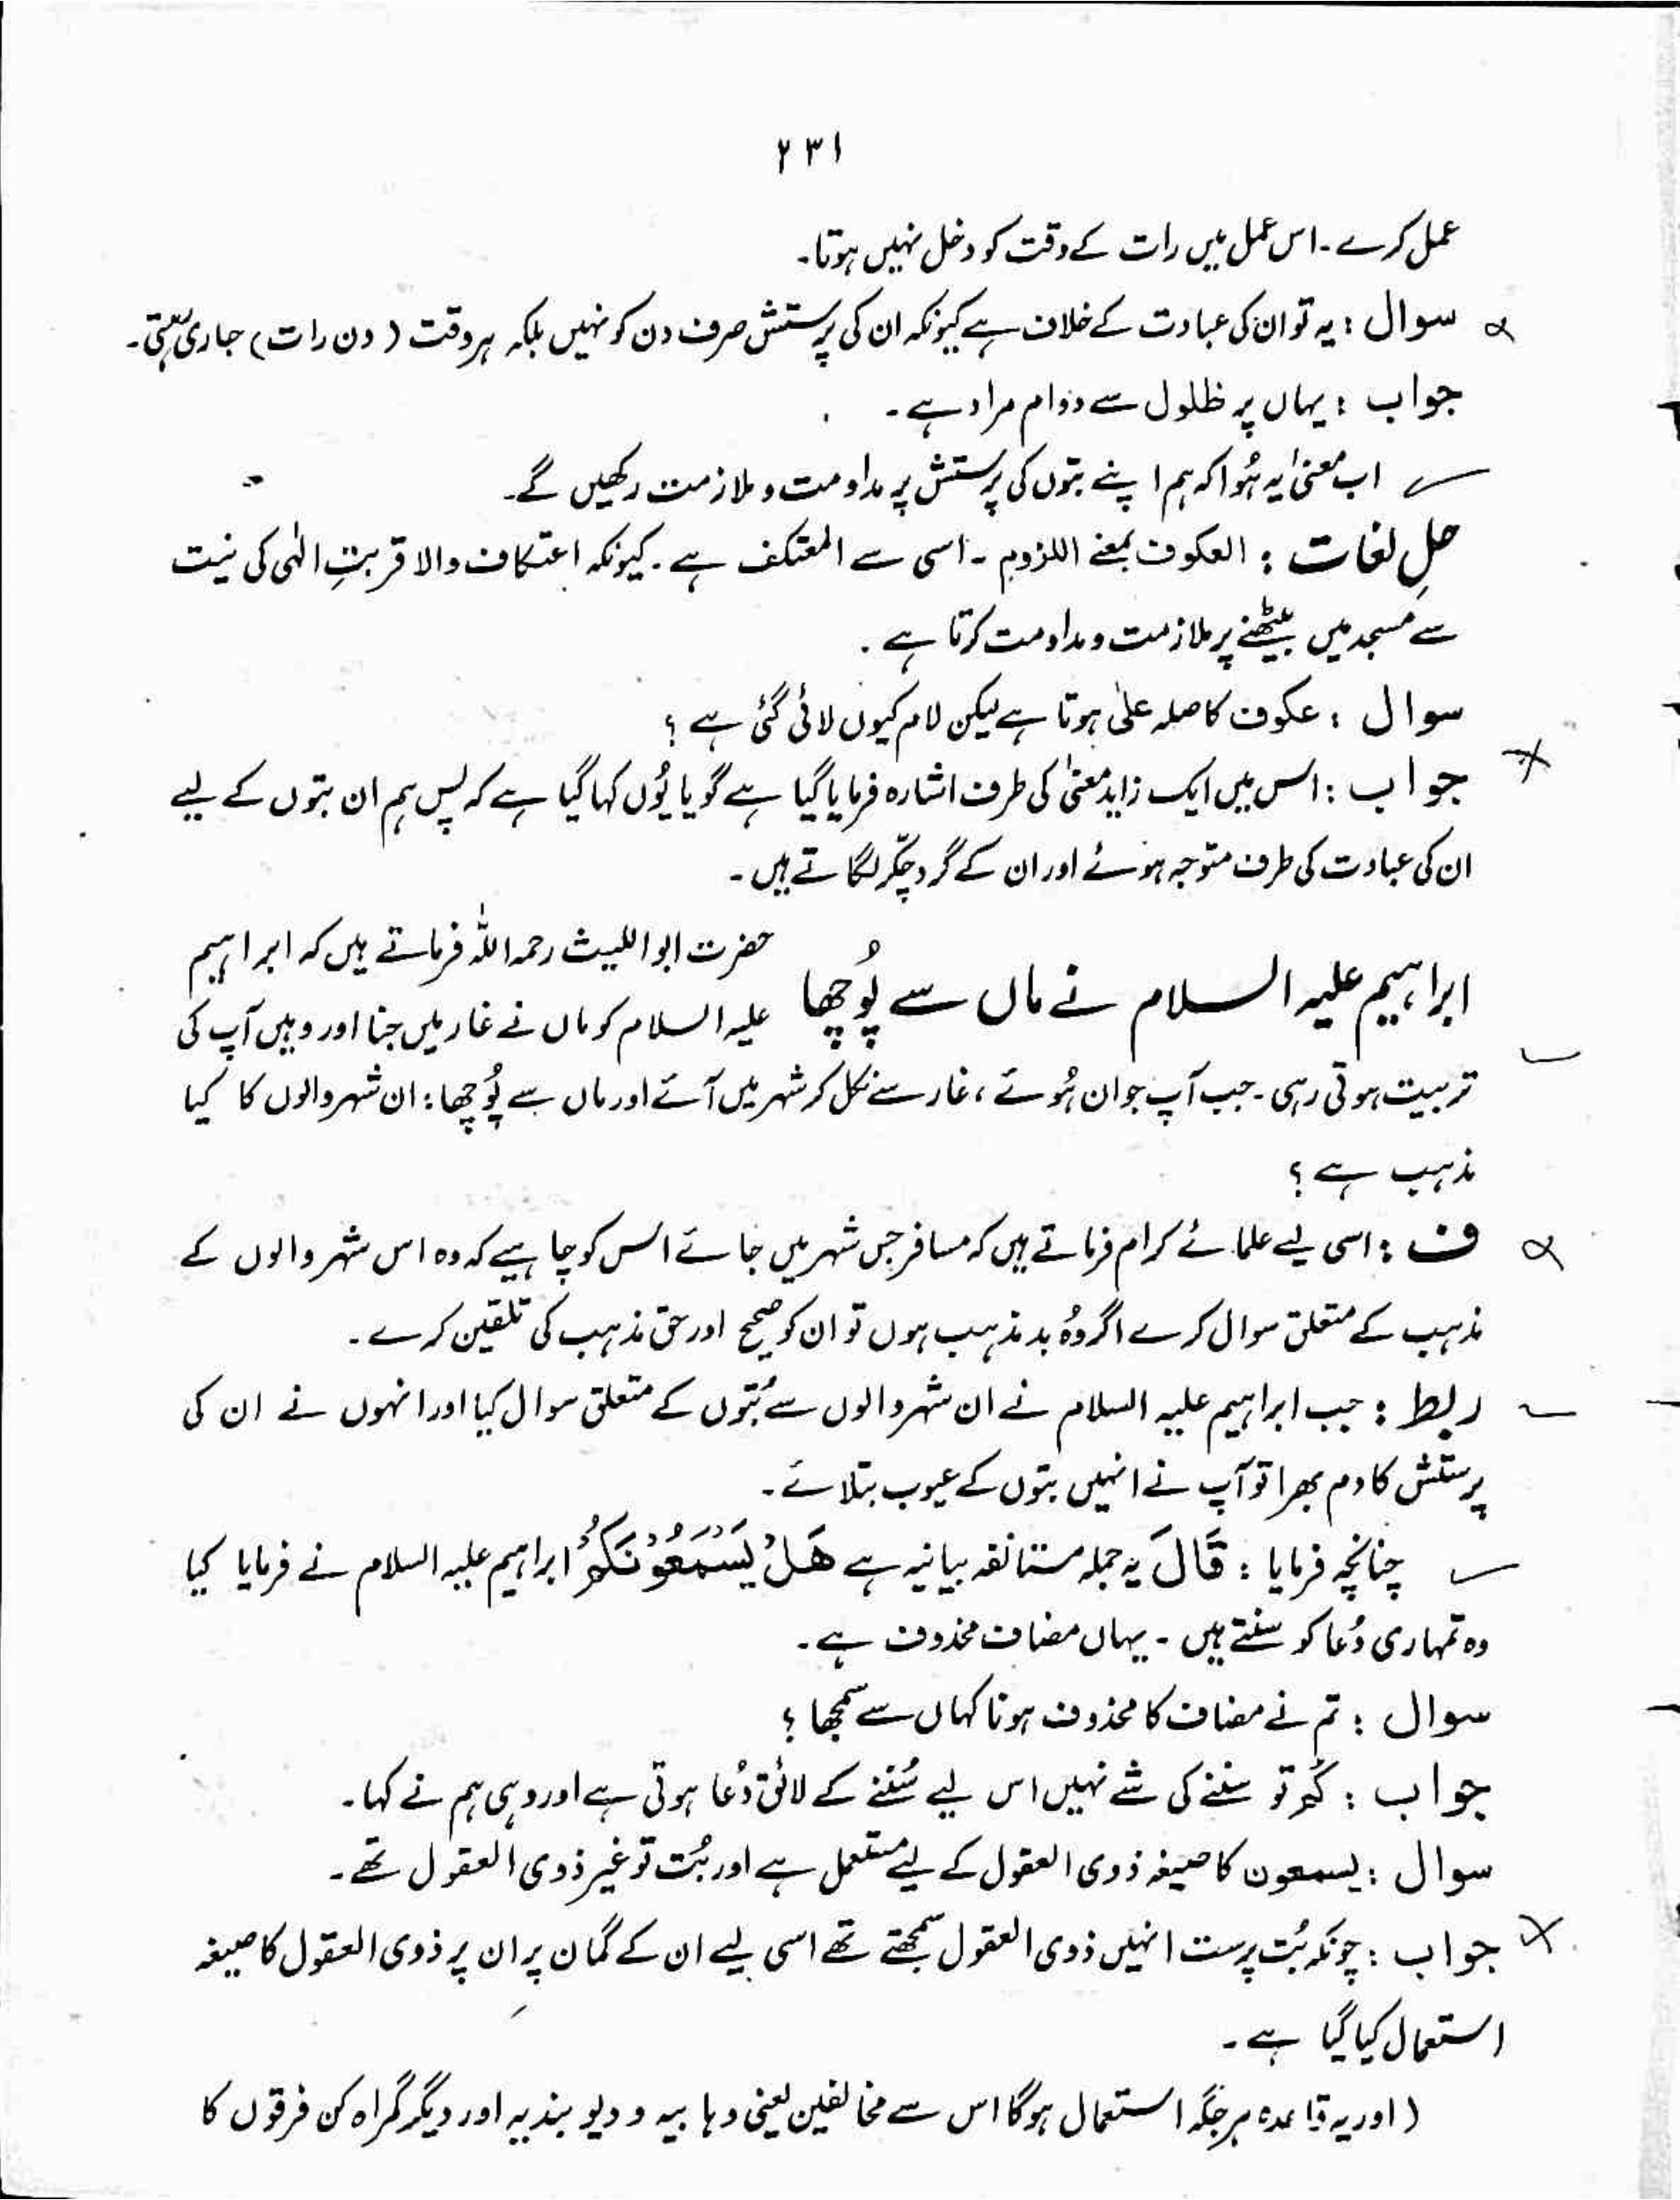 ۲۳۱
عمل کرے ۔ اس عمل میں رات کے وقت کو دخل نہیں ہوتا۔
سوال : یہ تو ان کی عبادت کے خلاف ہے کیونکہ ان کی پرستش صرف دن کو نہیں بلکہ ہر وقت ( دن رات) جاری رہتی ۔
جواب : یہاں پر ظلول سے دوام مراد ہے ۔
اب معنیٰ یہ ہُوا کہ ہم اپنے بتوں کی پرستش پر مداومت و ملازمت رکھیں گے۔
حلِ لغات : العکوف بمعنے اللزوم ۔ اسی سے المعتکف ہے ۔ کیونکہ اعتکاف والا قربتِ الٰہی کی نیت
سے مسجد میں بیٹھنے پر ملازمت و مداومت کرتا ہے .
سوال : عکوف کا صلہ علیٰ ہوتا ہے لیکن لام کیوں لائی گئی ہے ؟
جواب : اس میں ایک زاید معنیٰ کی طرف اشارہ فرمایا گیا ہے گویا یُوں کہا گیا ہے کہ پس ہم ان بتوں کے لیے
ان کی عبادت کی طرف متوجہ ہوئے اور ان کے گرد چکّر لگاتے ہیں ۔
ابراہیم علیہ السلام نے ماں سے پُوچھا
حضرت ابو اللیث رحمہ اللہ فرماتے ہیں کہ ابراہیم
علیہ السلام کو ماں نے غار میں جنا اور وہیں آپ کی
تربیت ہوتی رہی ۔ جب آپ جوان ہُوئے ، غار سے نکل کر شہر میں آئے اور ماں سے پُوچھا : ان شہر والوں کا کیا
مذہب ہے ؟
ف : اسی لیے علمائے کرام فرماتے ہیں کہ مسافر جس شہر میں جائے اس کو چاہیے کہ وہ اس شہر والوں کے
مذہب کے متعلق سوال کرے اگر وُہ بد مذہب ہوں تو ان کو صحیح اور حق مذہب کی تلقین کرے ۔
ربط : جب ابراہیم علیہ السلام نے ان شہر والوں سے بُتوں کے متعلق سوال کیا اور انہوں نے ان کی
پرستش کا دم بھرا تو آپ نے انہیں بتوں کے عیوب بتلائے ۔
چنانچہ فرمایا : قَالَ یہ جملہ مستانفہ بیانیہ ہے هَلْ يَسْمَعُوْنَكُمْ ابراہیم علیہ السلام نے فرمایا کیا
وہ تمہاری دُعا کو سنتے ہیں ۔ یہاں مضاف محذوف ہے ۔
سوال : تم نے مضاف کا محذوف ہونا کہاں سے سمجھا ؟
جواب : کُم تو سننے کی شے نہیں اس لیے سُننے کے لائق دُعا ہوتی ہے اور وہی ہم نے کہا ۔
سوال : یسمعون کا صیغہ ذوی العقول کے لیے مستعمل ہے اور بُت تو غیر ذوی العقول تھے ۔
جواب : چونکہ بُت پرست انہیں ذوی العقول سمجھتے تھے اسی لیے ان کے گمان پر ان پر ذوی العقول کا صیغہ
استعمال کیا گیا ہے ۔
( اور یہ قاعدہ ہر جگہ استعمال ہوگا اس سے مخالفین یعنی وہابیہ و دیوبندیہ اور دیگر گمراہ کن فرقوں کا